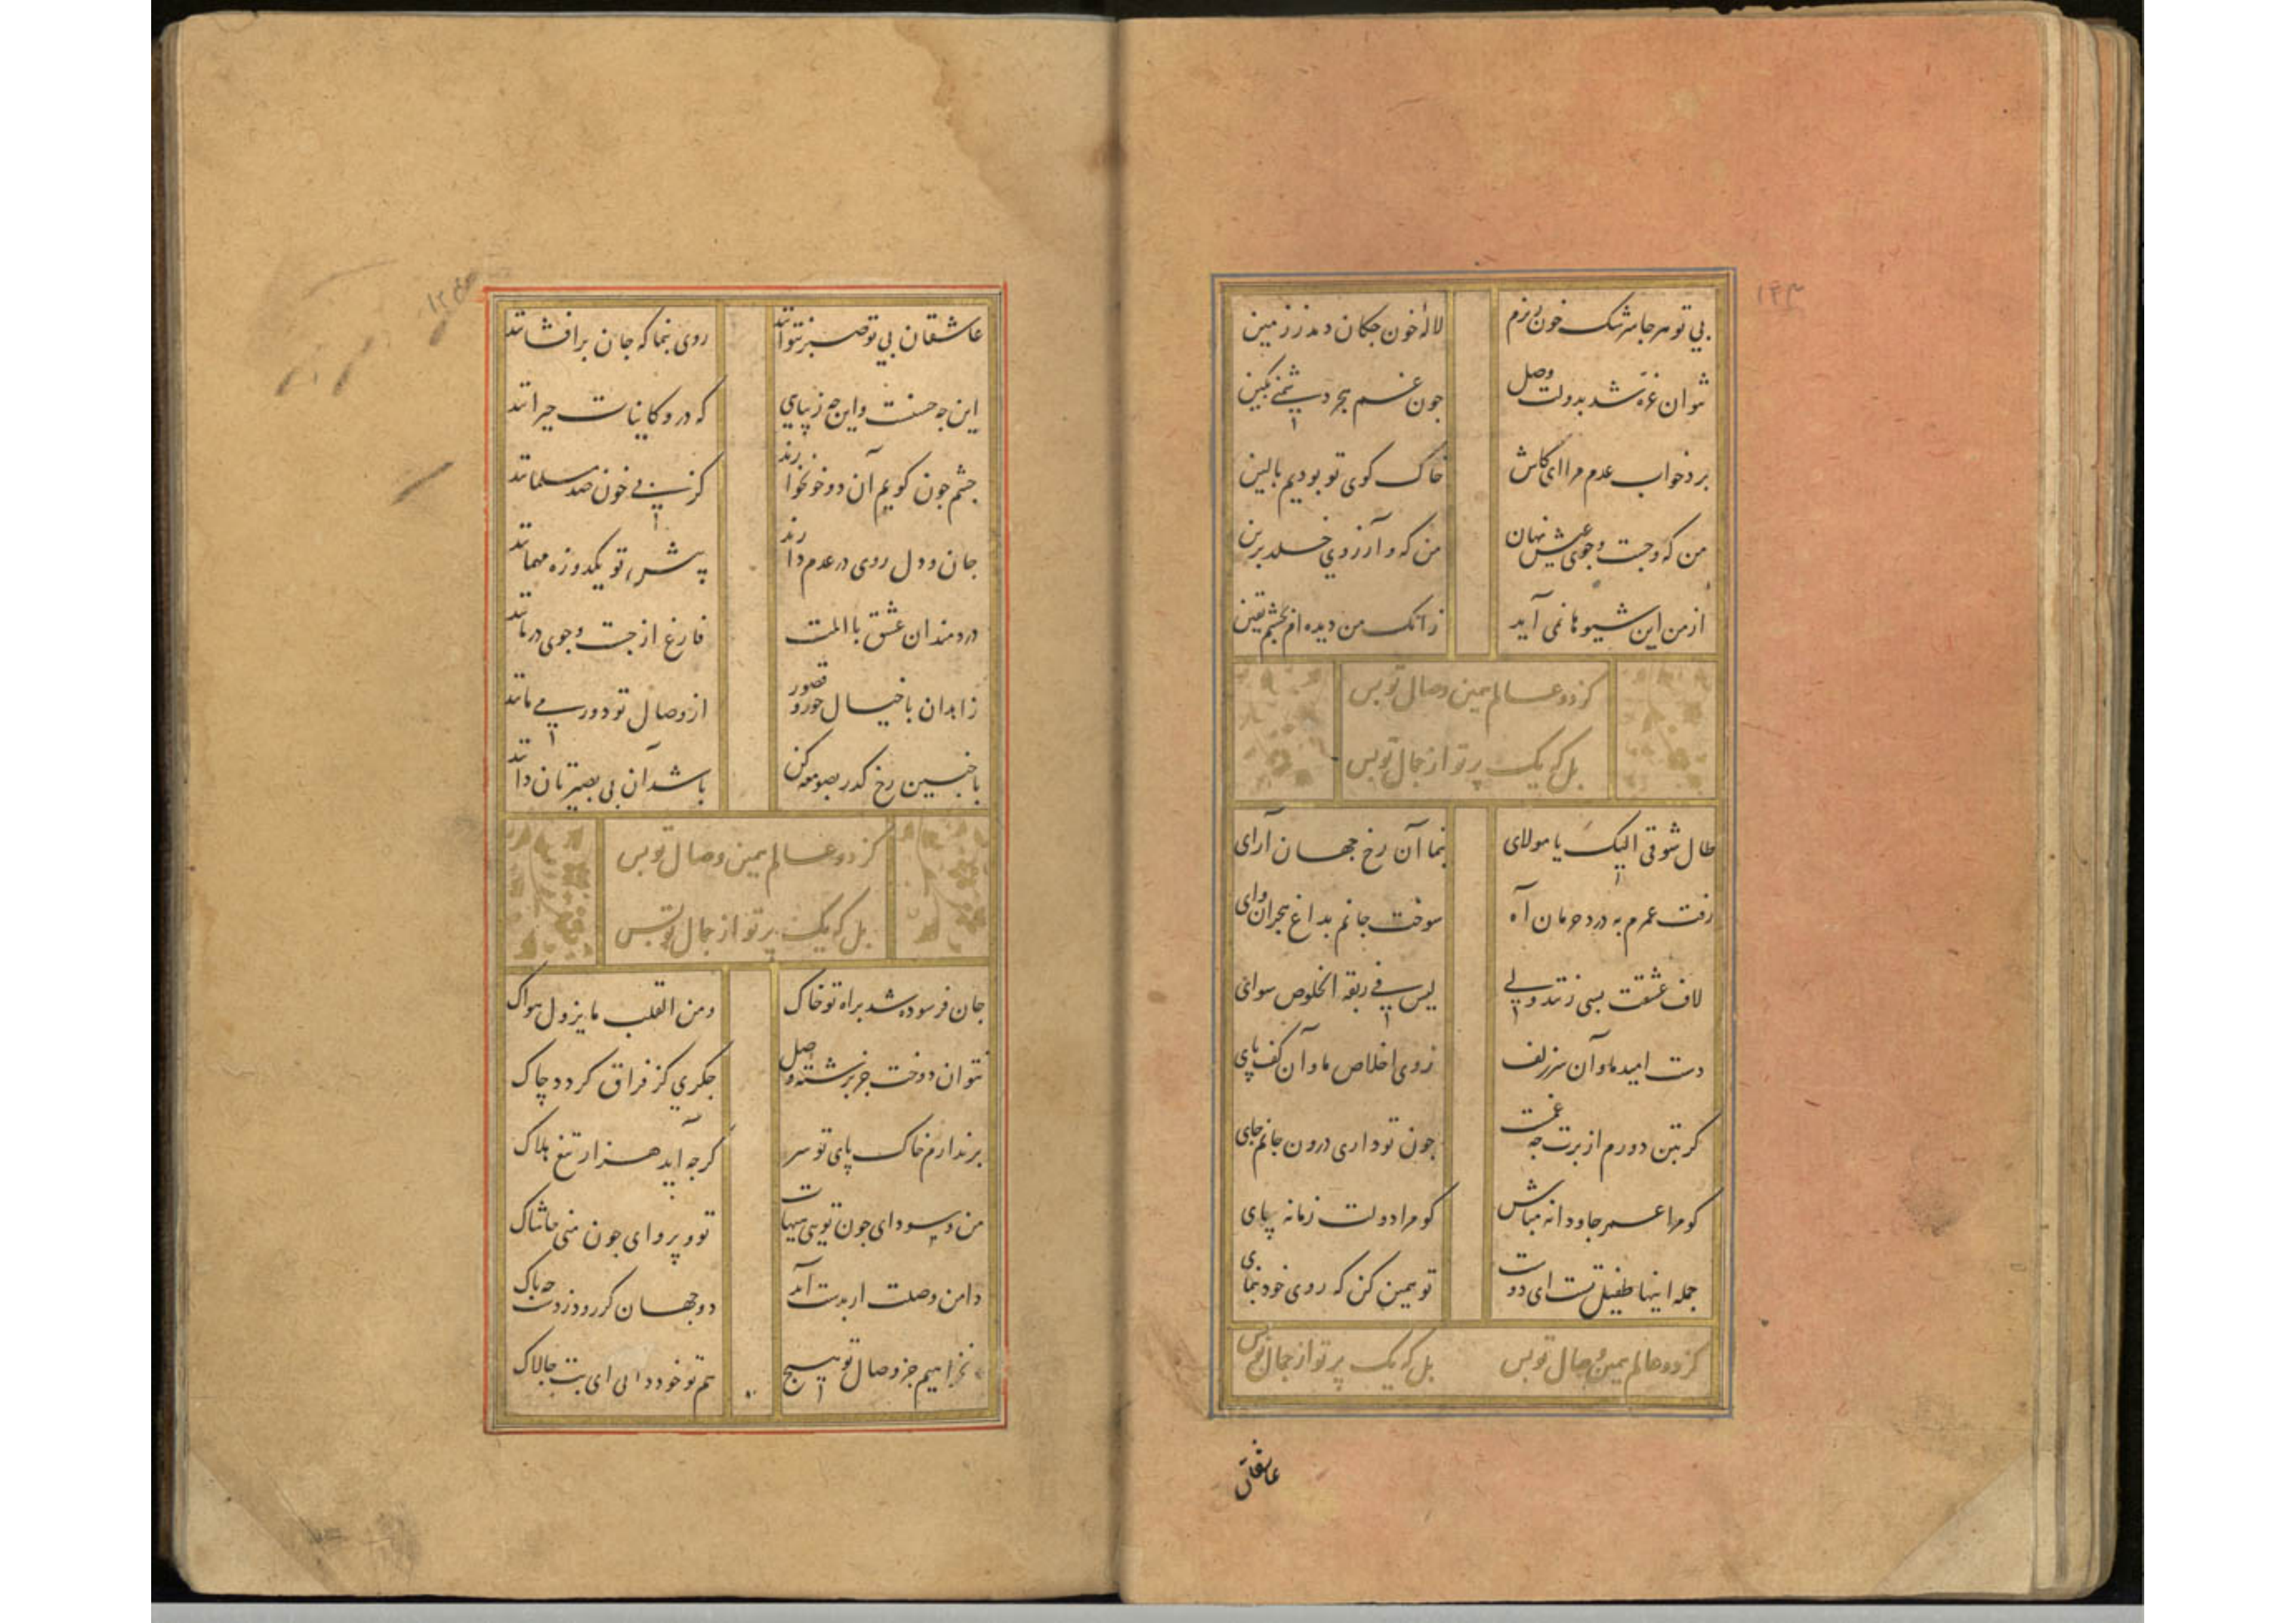 ۱۴۳
بی تو هر جا سرشک خون ریزم لالۀ خون چکان دمد ز زمین
نتوان غرّه شد بدولت وصل چون غم هجر دشمنی بکین
برد خواب عدم مرا ای کاش خاک کوی تو بودیم بالین
من که و جست و جوی عیش نهان من که و آرزوی خلد برین
از من این شیوها نمی آید زانک من دیده ام بچشم یقین
کز دو عالم همین وصال تو بس
بل که یک پرتو از جمال تو بس
طال شوقی الیک یا مولای بنما آن رخ جهان آرای
رفت عمرم به درد حرمان آه سوخت جانم بداغ هجران وای
لاف عشقت بسی زنند ولی لیس فی ربقة الخلوص سوای
دست امید ما و آن سر زلف روی اخلاص ما و آن کف پای
گر بتن دورم از برت چه غمست چون تو داری درون جانم جای
گو مرا عمر جاودانه مباش گو مرا دولت زمانه مپای
جمله اینها طفیل تست ای دوست تو همین کن که روی خود بنمای
کز دو عالم همین وصال تو بس بل که یک پرتو از جمال تو بس
عاشقان
عاشقان بی تو صبر نتوانند روی بنما که جان برافشانند
این چه حسنست و این چه زیبایی که درو کاینات حیرانند
چشم چون گویم آن دو خونخوارند کز پی خون صد مسلمانند
جان و دل روی در عدم دارند پیش تو یکدو روزه مهمانند
دردمندان عشق با المت فارغ از جست و جوی درمانند
زاهدان با خیال حور و قصور از وصال تو دور می مانند
با چنین رخ گذر بصومعه کن باشد آن بی بصیرتان دانند
کز دو عالم همین وصال تو بس
بل که یک پرتو از جمال تو بس
جان فرسوده شد براه تو خاک و من القلب ما یزول هواک
نتوان دوخت جز برشتۀ وصل جگری کز فراق گردد چاک
برندارم ز خاک پای تو سر گرچه آید هزار تیغ هلاک
من و سودای چون تویی هیهات تو و پروای چون منی حاشاک
دامن وصلت ار بدست آید دو جهان گر رود ز دست چه باک
نخواهیم جز وصال تو هیچ هم تو خود دانی ای بت چالاک